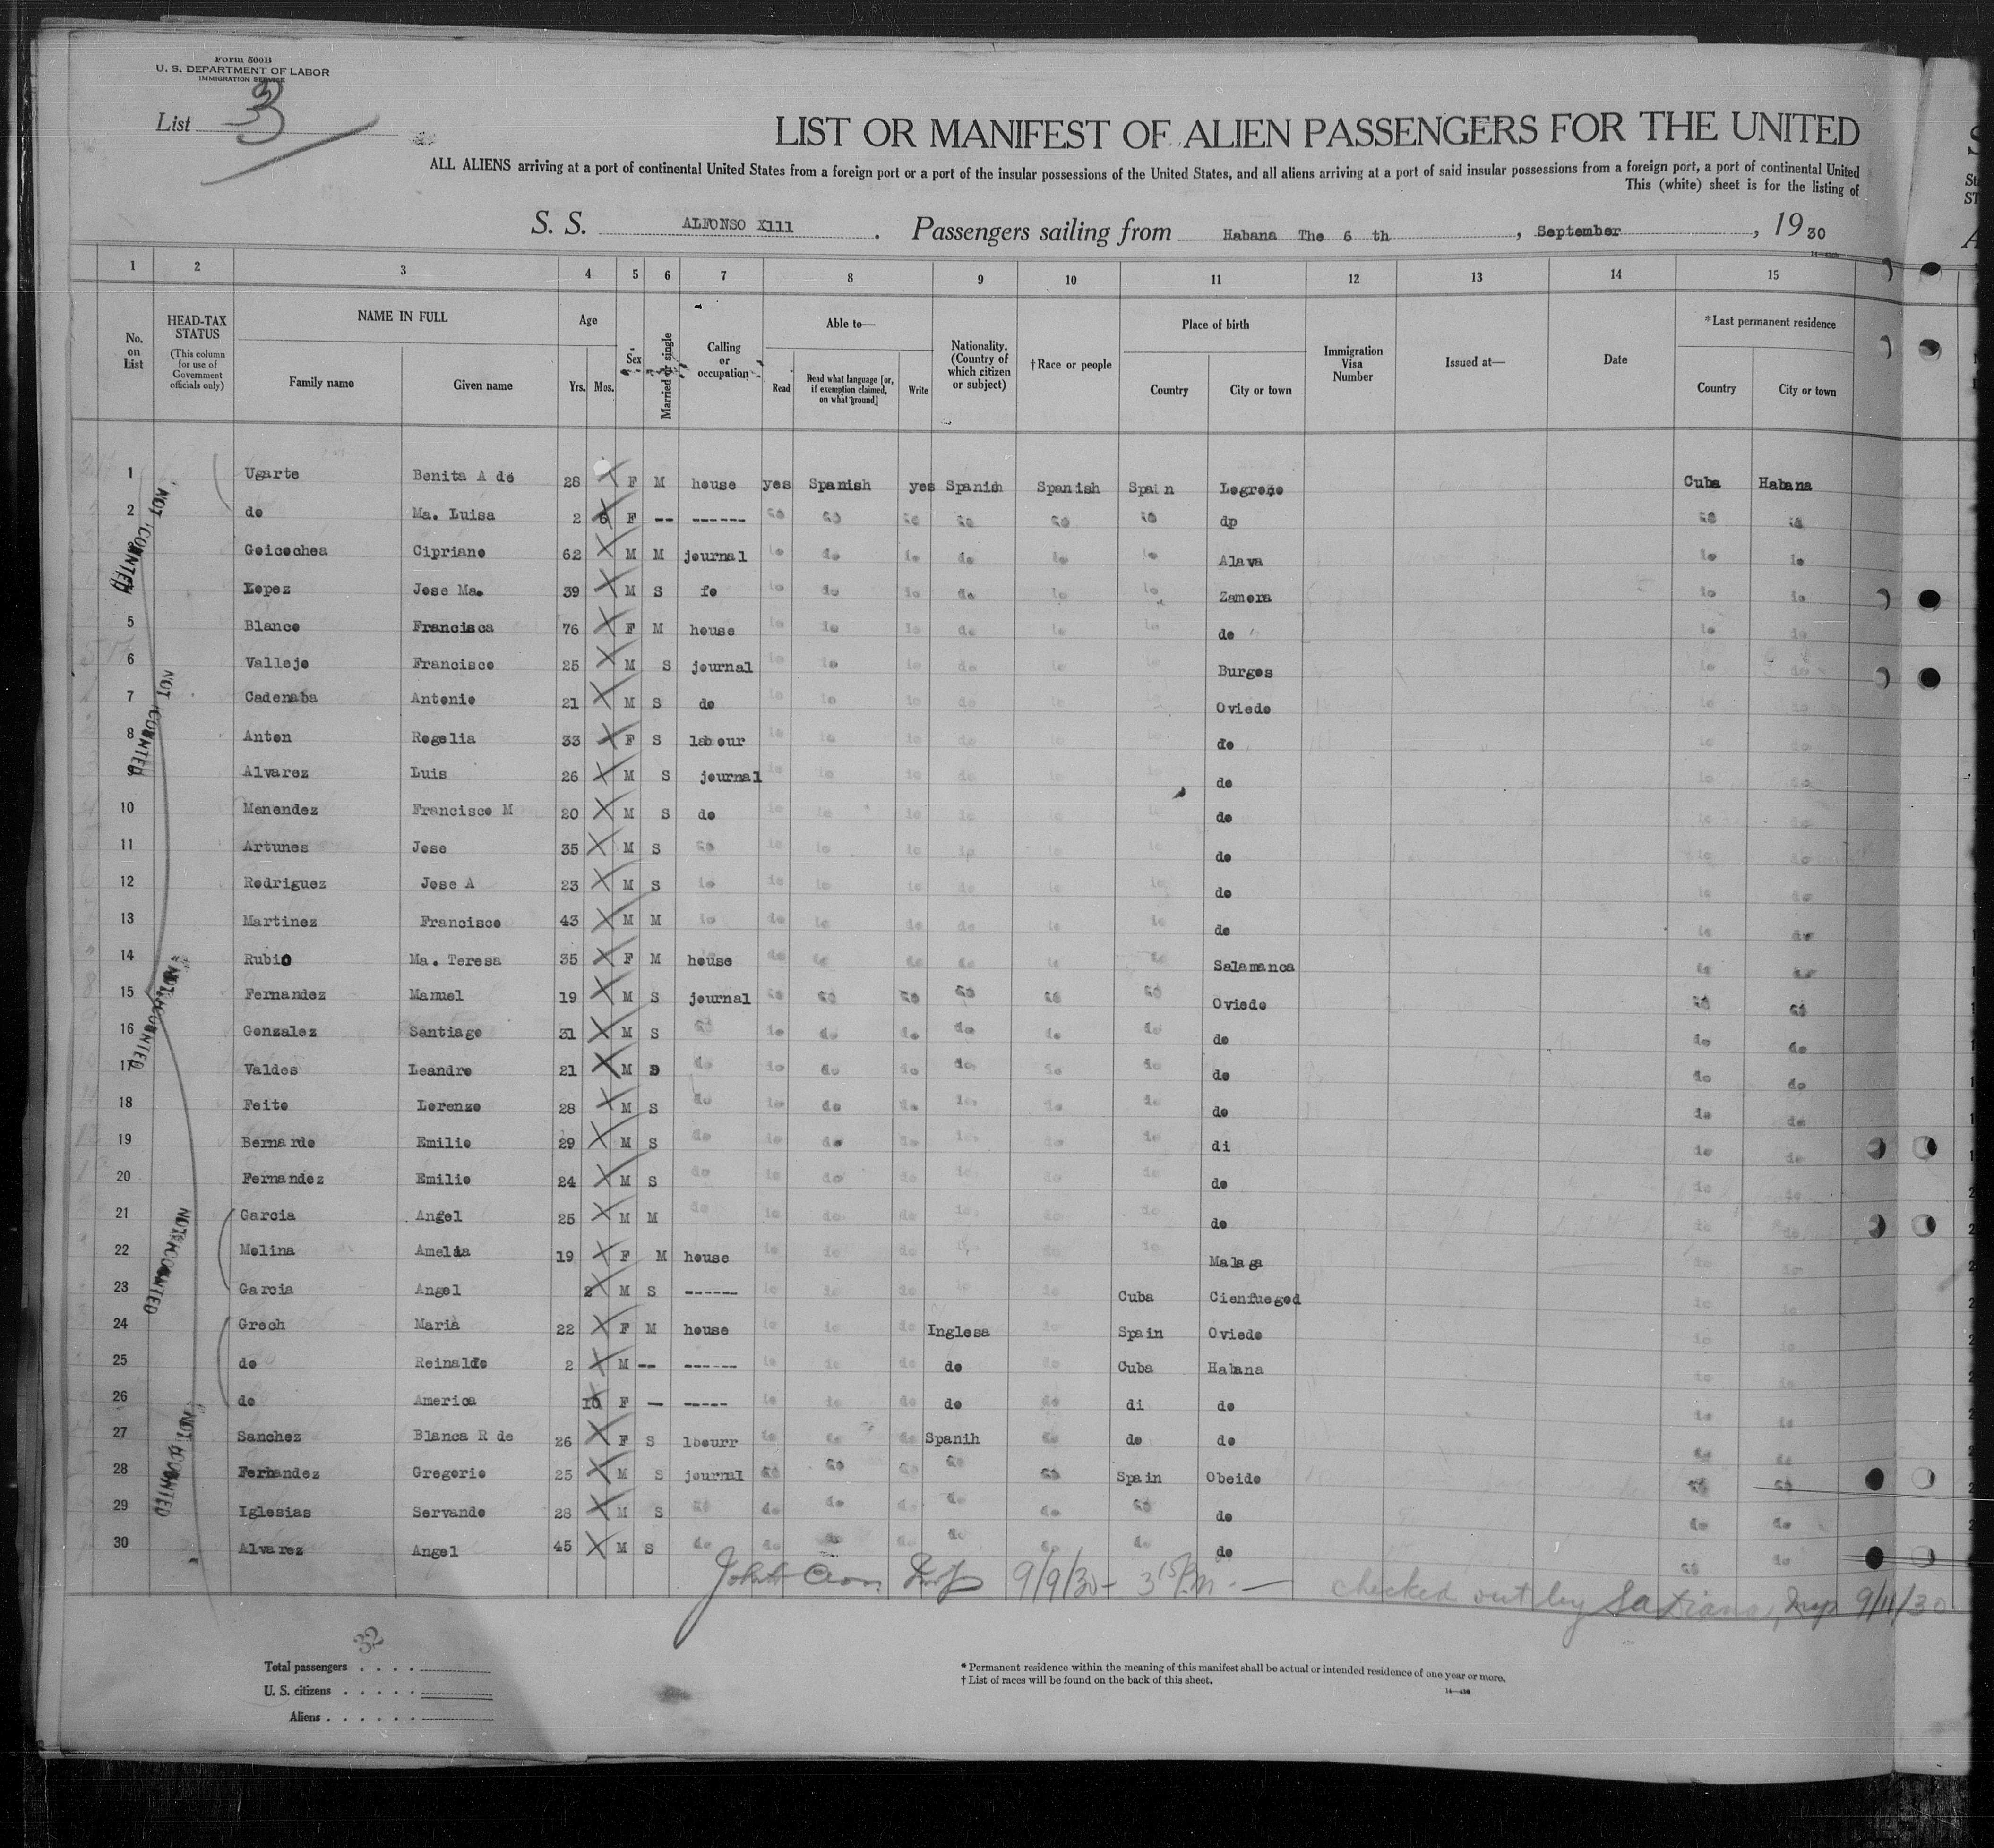 Form 500B
U. S. DEPARTMENT OF LABOR
IMMIGRATION SERVICE
List 3
LIST OR MANIFEST OF ALIEN PASSENGERS FOR THE UNITED
ALL ALIENS arriving at a port of continental United States from a foreign port or a port of the insular possessions of the United States, and all aliens arriving at a port of said insular possessions from a foreign port, a port of continental United
This (white) sheet is for the listing of
S. S. ALFONSO X111 . Passengers sailing from Habana The 6 th , September , 19 30
1 2 3 4 5 6 7 8 9 10 11 12 13 14 15
No. on List
HEAD-TAX STATUS
(This column for use of Government officials only)
NAME IN FULL
Family name Given name
Age
Yrs. Mos.
Sex
Married or single
Calling or occupation
Able to—
Read
Read what language [or, if exemption claimed, on what ground]
Write
Nationality. (Country of which citizen or subject)
†Race or people
Place of birth
Country City or town
Immigration Visa Number
Issued at—
Date
*Last permanent residence
Country City or town
1 Ugarte Benita A de 28 F M house yes Spanish yes Spanish Spanish Spain Logroño Cuba Habana
2 do Ma. Luisa 2 6 F -- ------ do do do do do do dp do do
Goicochea Cipriano 62 M M journal do do do do do do Alava do do
Lopez Jose Ma. 39 M S fo do do do do do do Zamora do do
5 Blanco Francisca 76 F M house do do do do do do do do do
6 Vallejo Francisco 25 M S journal do do do do do do Burgos do do
7 Cadenaba Antonio 21 M S do do do do do do do Oviedo do do
8 Anton Rogelia 33 F S labour do do do do do do do do do
9 Alvarez Luis 26 M S journal do do do do do do do do do
10 Menendez Francisco M 20 M S do do do do do do do do do do
11 Artunes Jose 35 M S do do do do do do do do do do
12 Rodriguez Jose A 23 M S do do do do do do do do do do
13 Martinez Francisco 43 M M do do do do do do do do do do
14 Rubio Ma. Teresa 35 F M house do do do do do do Salamanca do do
15 Fernandez Manuel 19 M S journal do do do do do do Oviedo do do
16 Gonzalez Santiago 31 M S do do do do do do do do do do
17 Valdes Leandro 21 M do do do do do do do do do do
18 Feito Lorenzo 28 M S do do do do do do do do do do
19 Bernardo Emilio 29 M S do do do do do do do di do do
20 Fernandez Emilio 24 M S do do do do do do do do do do
21 Garcia Angel 25 M M do do do do do do do do do do
22 Molina Amelia 19 F M house do do do do do do Malaga do do
23 Garcia Angel 2 M S ------ do do do do do Cuba Cienfueged do do
24 Grech Maria 22 F M house do do do Inglesa do Spain Oviedo do do
25 do Reinaldo 2 M -- ------ do do do do do Cuba Habana do do
26 do America 10 F — ----- do do do do do di do do do
27 Sanchez Blanca R de 26 F S lbourr do do do Spanih do do do do do
28 Fernandez Gregorio 25 M S journal do do do do do Spain Obeido do do
29 Iglesias Servando 28 M S do do do do do do do do do do
30 Alvarez Angel 45 M S do do do do do do do do do do
"NOT COUNTED"
NOT COUNTED
"NOT COUNTED
NOT COUNTED
"NOT COUNTED
9/9/30 - 3 15 P.m. — checked out by Insp 9/11/30
32
Total passengers . . . .
U. S. citizens . . . . .
Aliens . . . . . .
* Permanent residence within the meaning of this manifest shall be actual or intended residence of one year or more.
† List of races will be found on the back of this sheet.
14—430